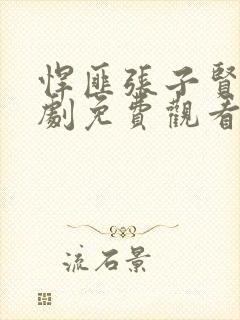 悍匪張子賢
劇免費觀看
流石景